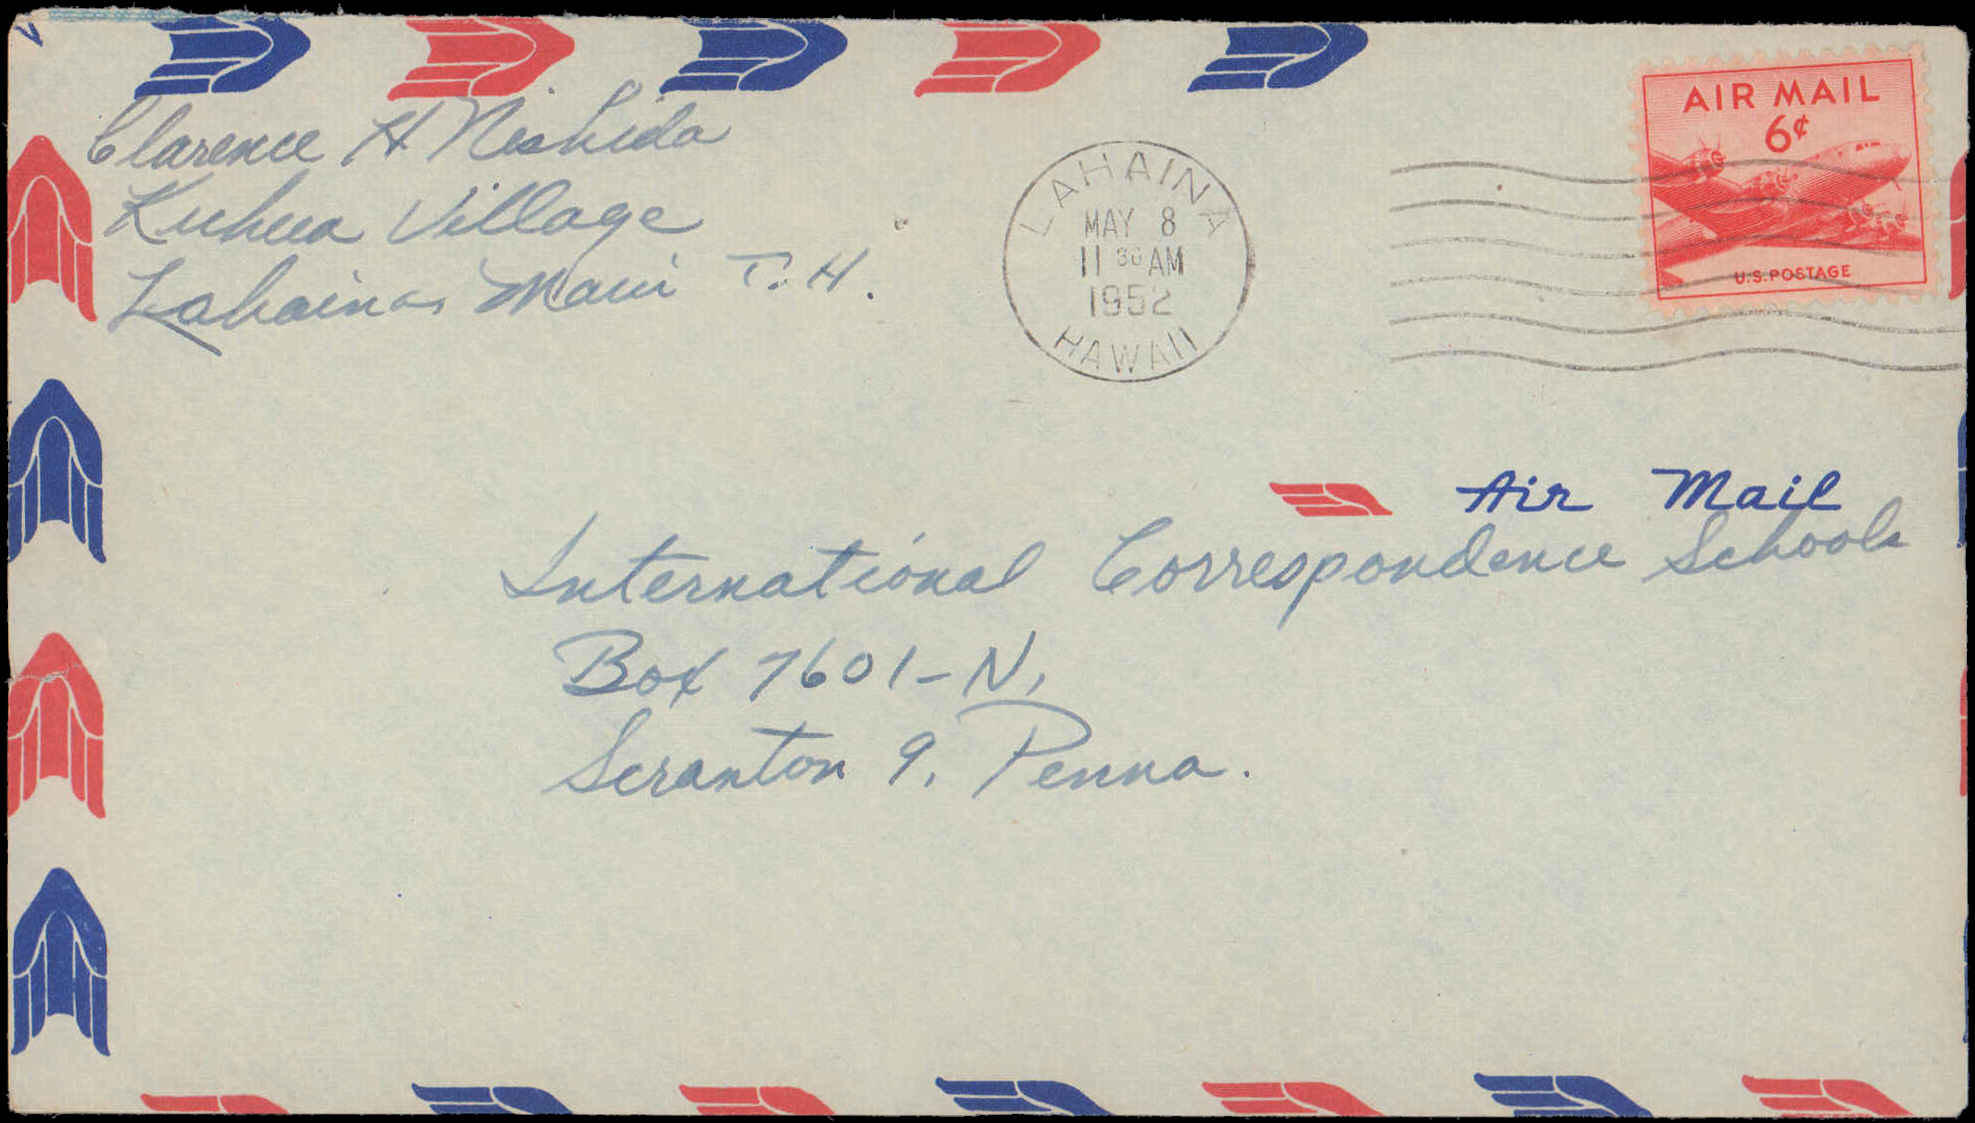 Clarence H Nishida
Kuhua Village
Lahaina, Maui T.H.
LAHAINA
MAY 8
11 30 AM
1952
HAWAII
AIR MAIL
6¢
U.S. POSTAGE
Air Mail
International Correspondence Schools
Box 7601-N,
Scranton 9, Penna.